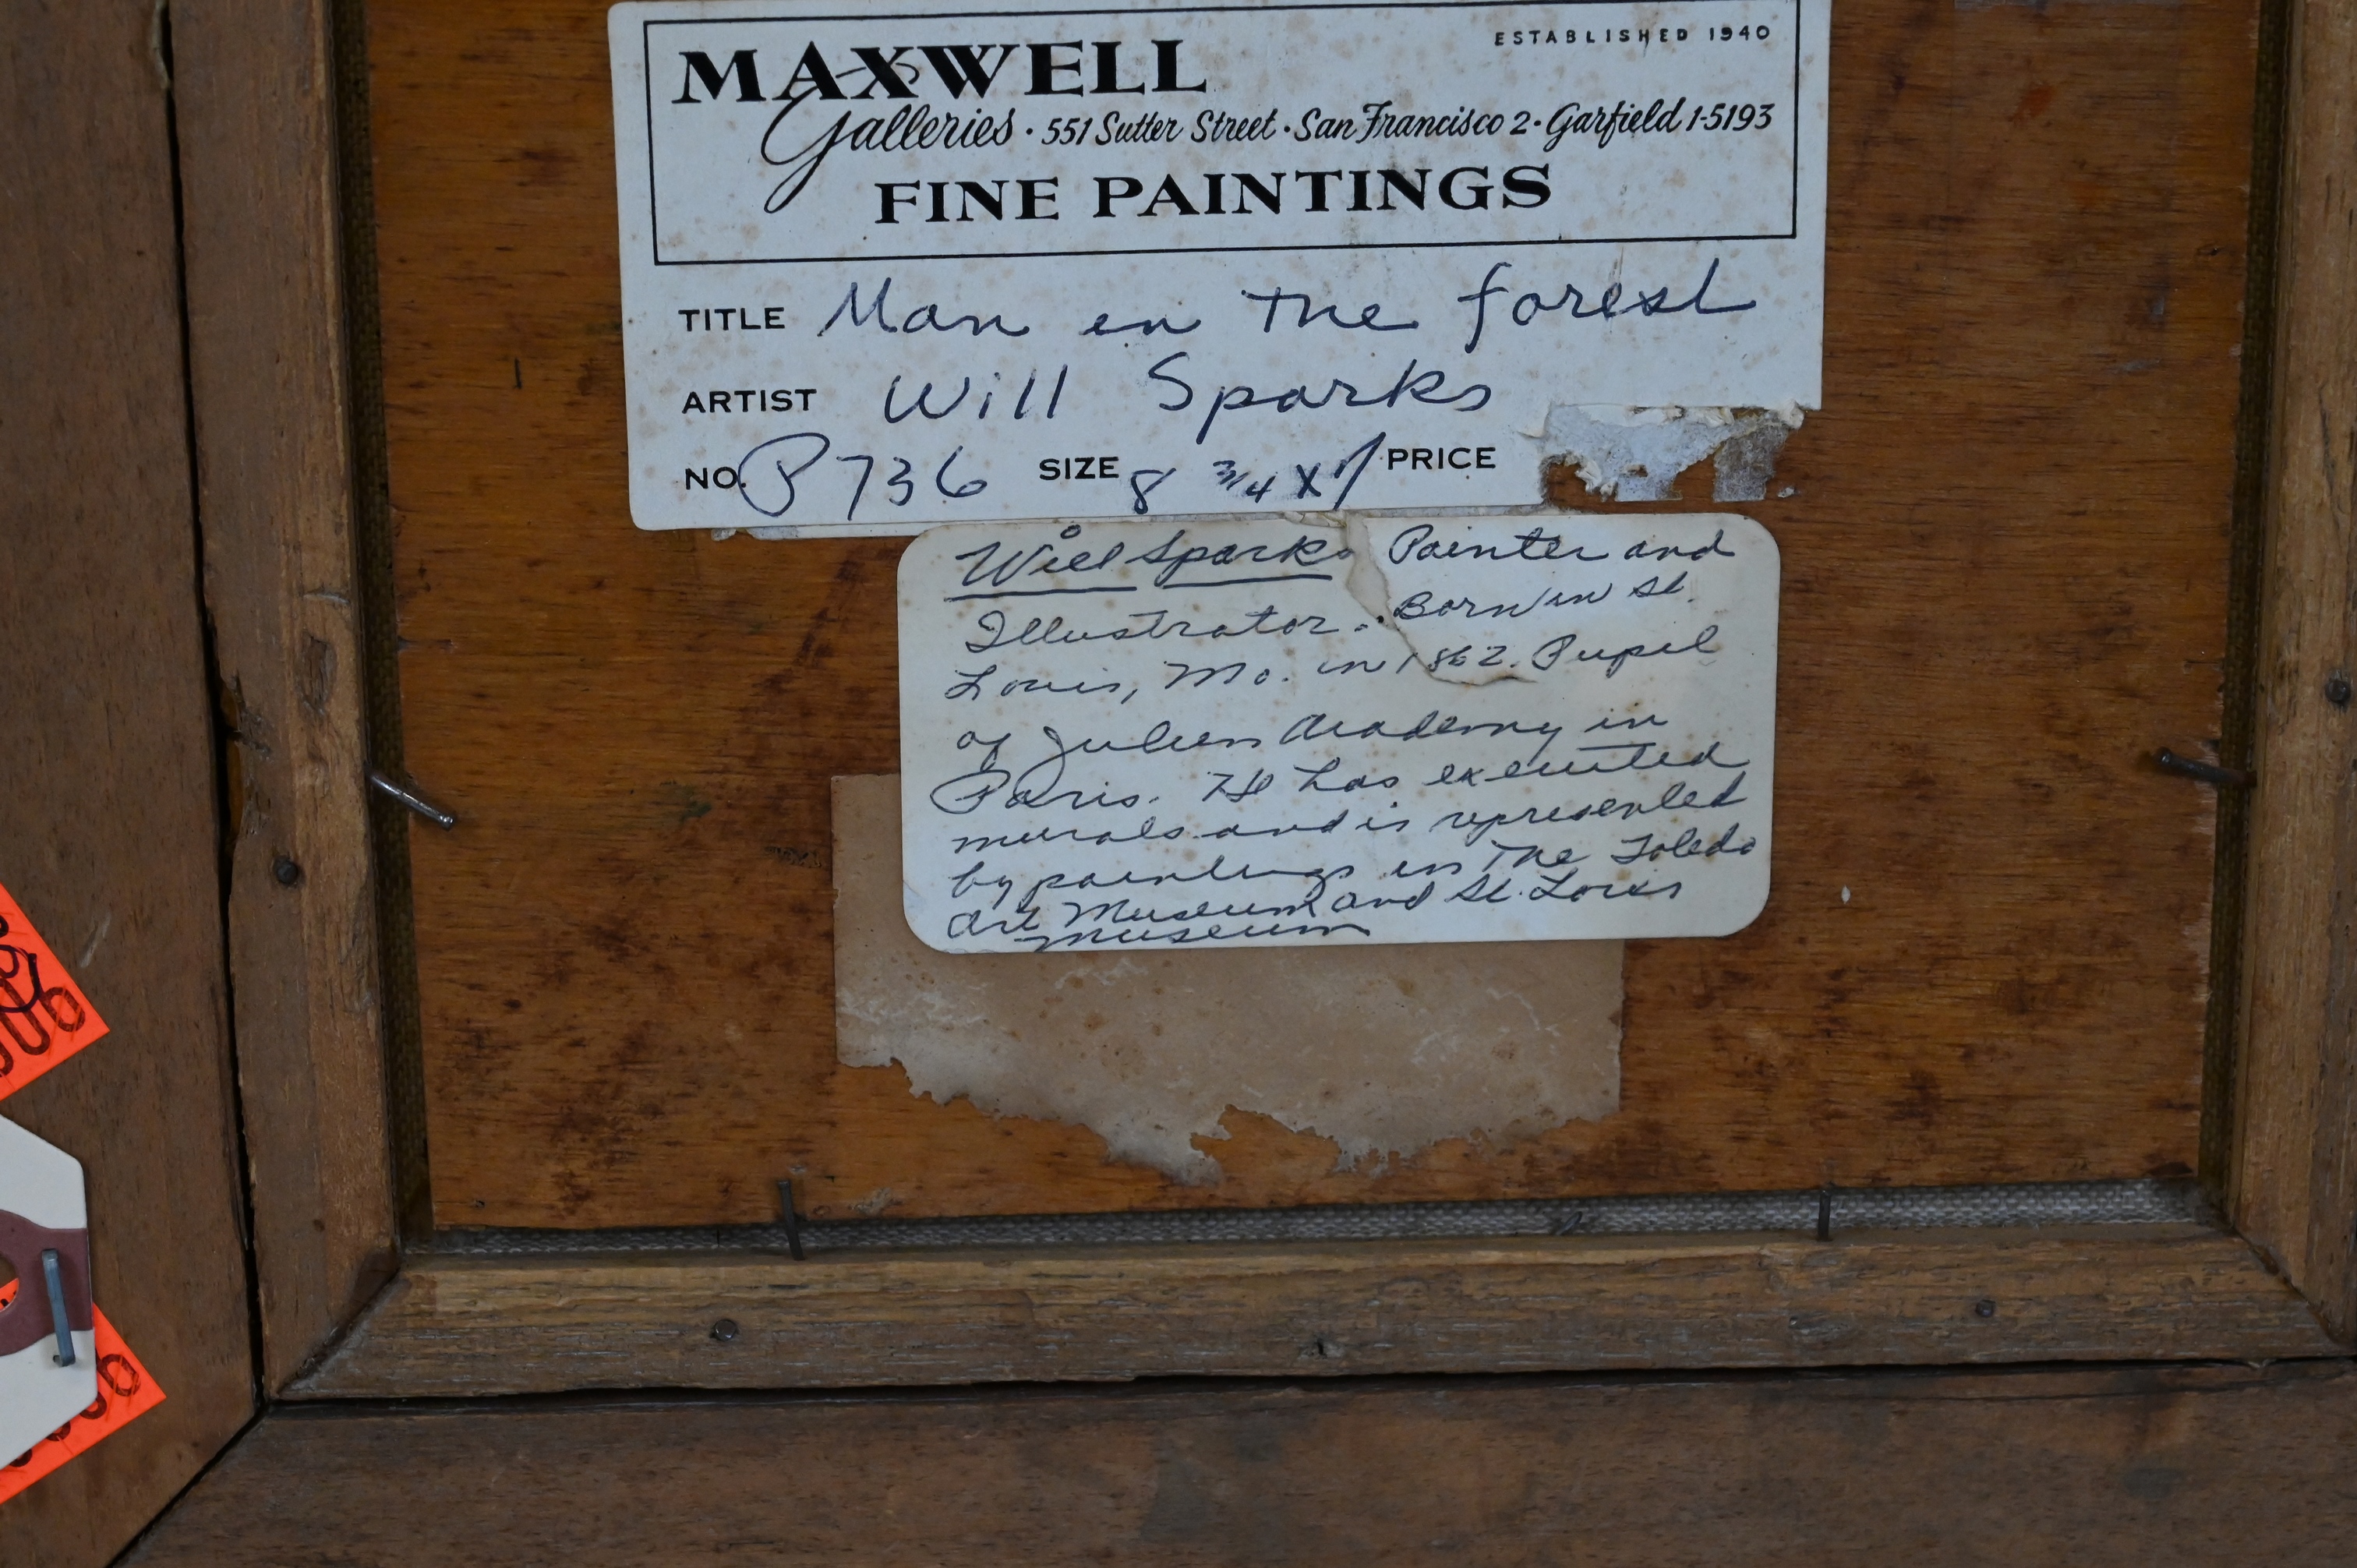 ESTABLISHED 1940
MAXWELL
Galleries · 551 Sutter Street · San Francisco 2 · Garfield 1-5193
FINE PAINTINGS
TITLE Man in The forest
ARTIST Will Sparks
NO. P736 SIZE 8 3/4 x 7 PRICE
Will Sparks Painter and
Illustrator. Born in St.
Louis, Mo. in 1862. Pupil
of Julien Academy in
Paris. He has executed
murals and is represented
by paintings in The Toledo
Art Museum and St. Louis
Museum